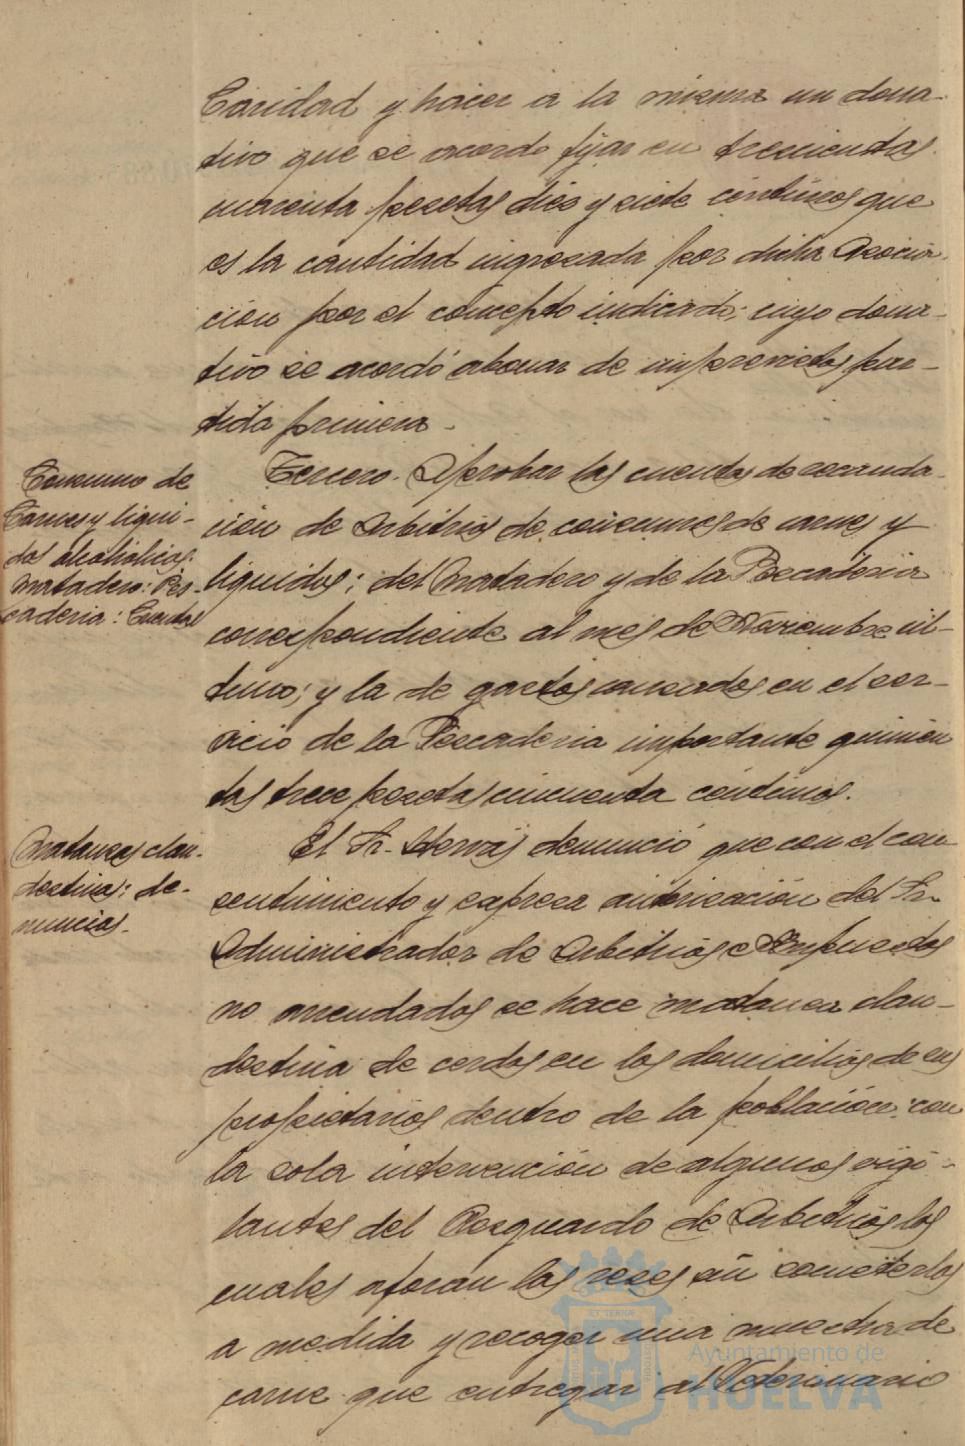 Caridad y hacer a la misma un dona-
tivo que se acordó fijar en trescientas
cuarenta pesetas diez y siete céntimos que
es la cantidad ingresada por dicha Asocia-
ción por el concepto indicado; cuyo dona-
tivo se acordó abonar de imprevistos par-
tida primera.
Consumo de
Carnes y líqui-
dos alcohólicos:
Matadero: Pes-
cadería: Cuentas
Tercero. Aprobar las cuentas de recauda-
ción de Arbitrios de consumos de carnes y
líquidos; del Matadero y de la Pescadería
correspondiente al mes de Noviembre úl-
timo; y la de gastos causados en el ser-
vicio de la Pescadería importante quinien
tas trece pesetas cincuenta céntimos.
Matanzas clan-
destinas: de-
nuncias.
El Sr. denunció que con el con-
sentimiento y expresa autorización del Sr.
Administrador de Arbitrios e Impuestos
no arrendados se hace matanza clan-
destina de cerdos en los domicilios de sus
propietarios dentro de la población con
la sola intervención de algunos vigi-
lantes del Resguardo de Arbitrios los
cuales aforan las reses sin someterlas
a medida y recoger una muestra de
carne que entregar al Veterinario
Ayuntamiento de
HUELVA